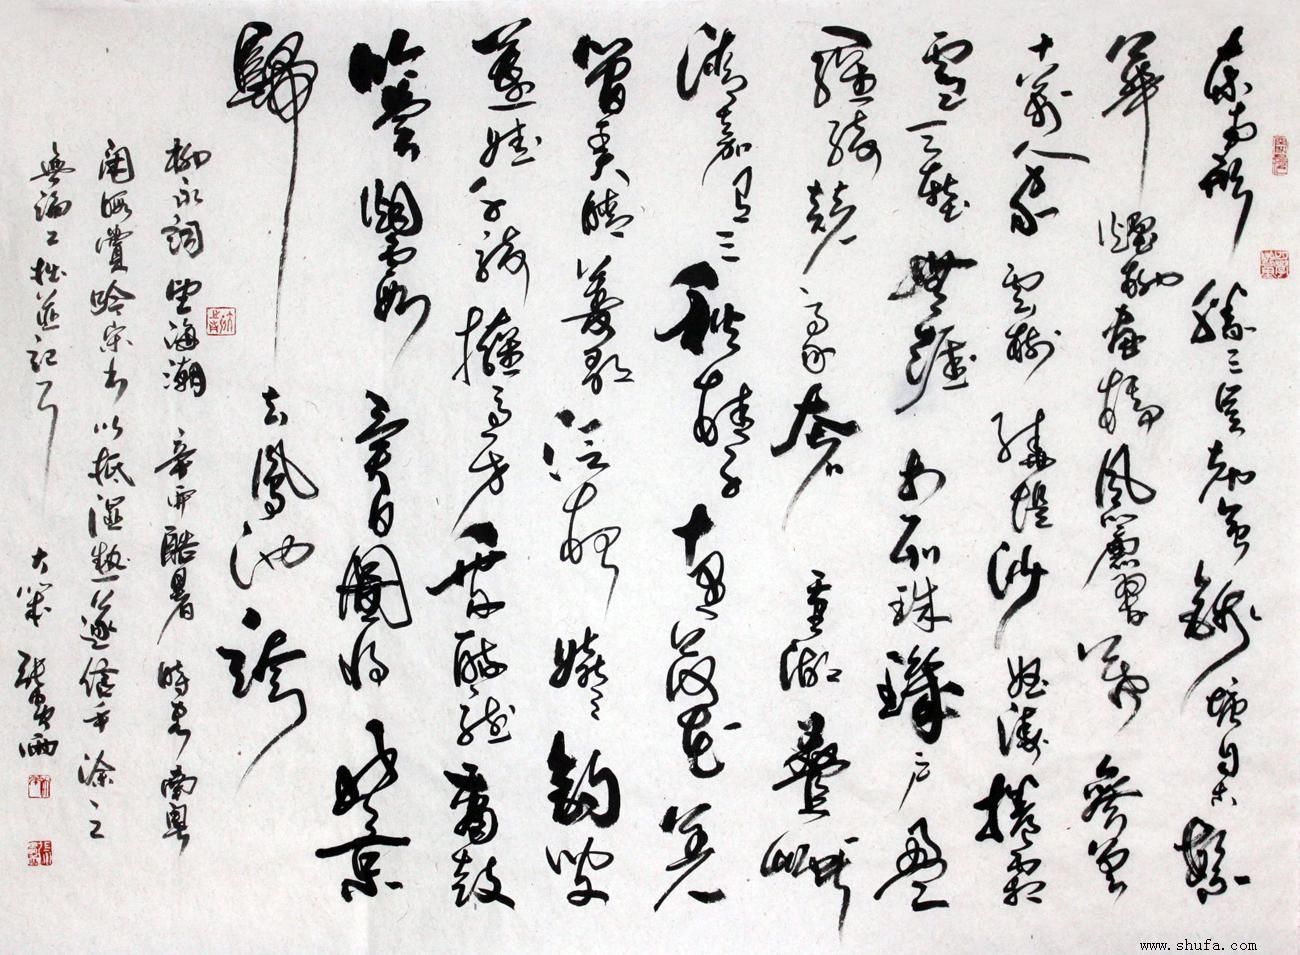 東南形勝三吳都會錢塘自古繁
華煙柳畫橋風簾翠幕參差
十萬人家雲樹繞堤沙怒濤捲霜
雪天塹無涯市列珠璣戶盈
羅綺競豪奢重湖疊巘
清嘉有三秋桂子十里荷花羌
管弄晴菱歌泛夜嬉嬉釣叟
蓮娃千騎擁高牙乘醉聽簫鼓
吟賞煙霞異日圖將好景
歸去鳳池誇
柳永詞望海潮酷暑時南粵
閑暇賞吟宋以抵濕熱遂信手塗之
無論工拙並記
www.shufa.com